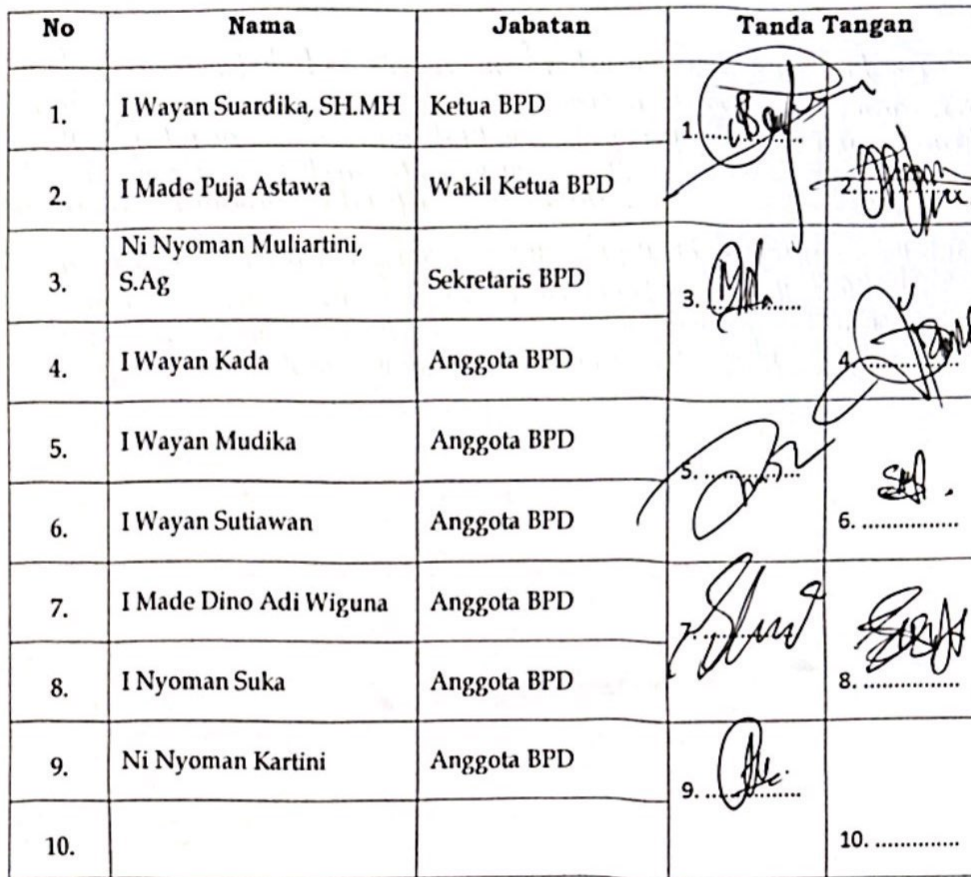 No Nama Jabatan Tanda Tangan
1. I Wayan Suardika, SH.MH Ketua BPD 1. ..............
2. I Made Puja Astawa Wakil Ketua BPD 2. ..............
3. Ni Nyoman Muliartini,
S.Ag Sekretaris BPD 3. ..............
4. I Wayan Kada Anggota BPD 4. ..............
5. I Wayan Mudika Anggota BPD 5. ..............
6. I Wayan Sutiawan Anggota BPD 6. ..............
7. I Made Dino Adi Wiguna Anggota BPD 7. ..............
8. I Nyoman Suka Anggota BPD 8. ..............
9. Ni Nyoman Kartini Anggota BPD 9. ..............
10. 10. ..............